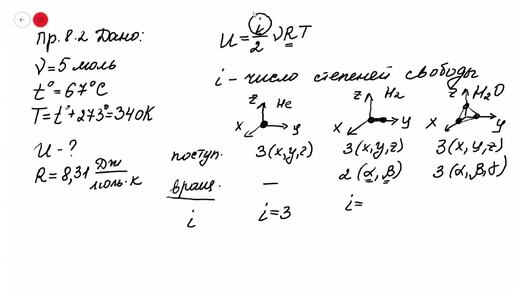 Пр. 8.2 Дано:
ν=5 моль
t°=67°C
T=t°+273°=340K
U-?
R=8,31 Дж/моль·К
U = i/2 νRT
i - число степеней свободы
z He z H₂ z H₂O
x y x y x y
поступ. 3(x,y,z) 3(x,y,z) 3(x,y,z)
вращ. — 2(α,β) 3(α,β,γ)
i i=3 i=